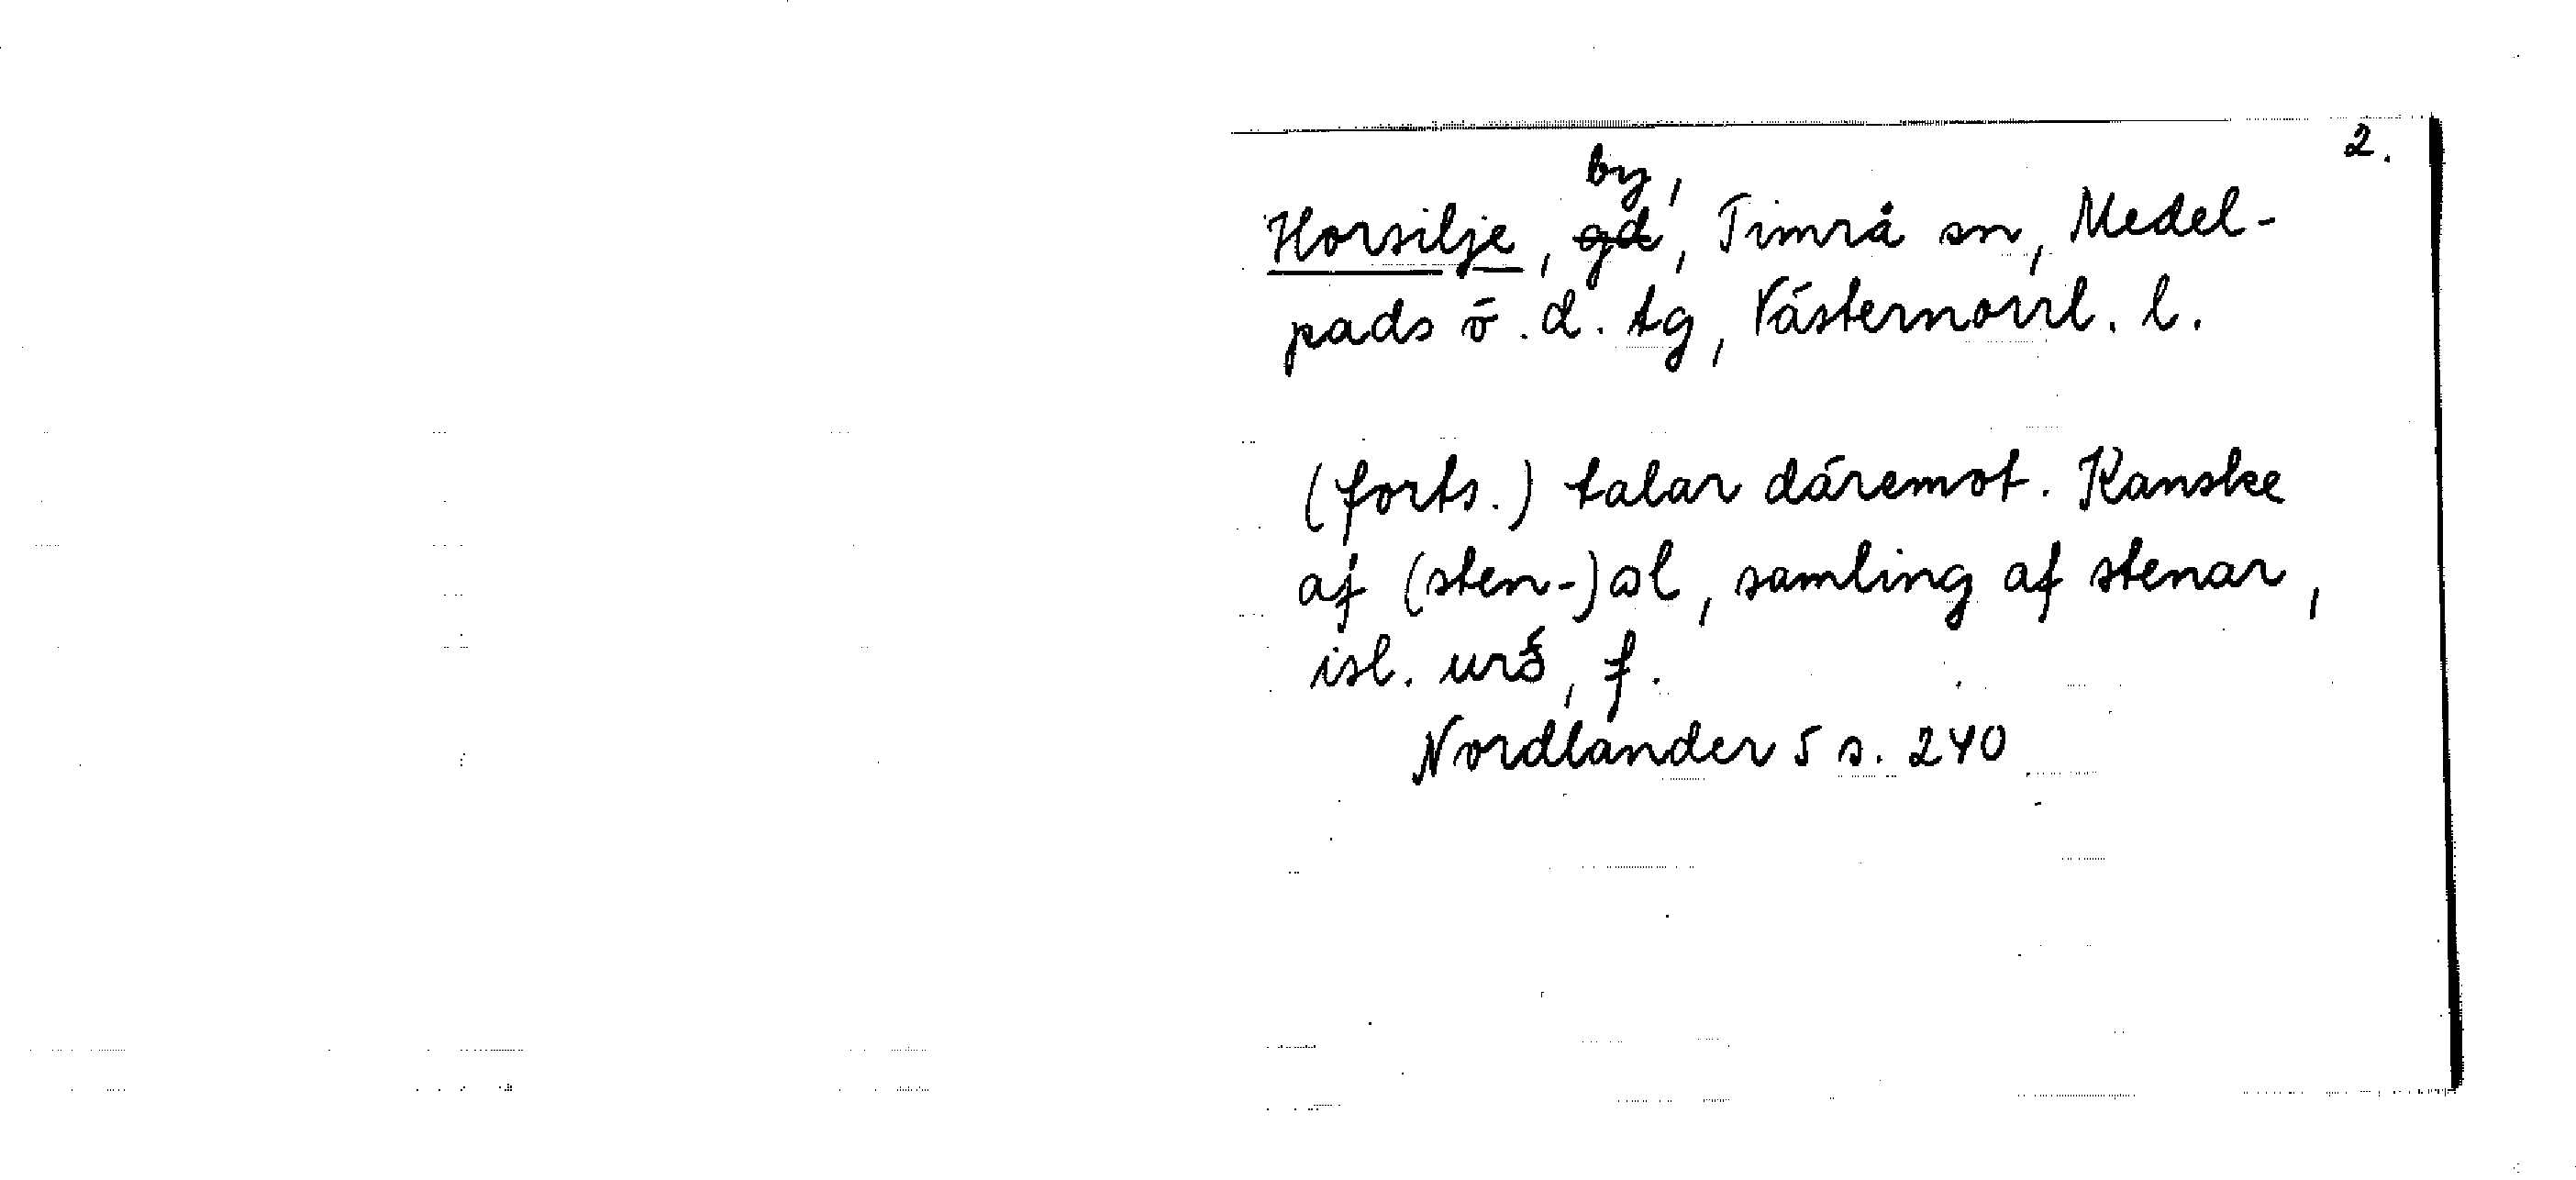 2.
by,
Horsilje, gd, Timrå sn, Medel-
pads ö. d. tg, Västernorrl. l.
(forts.) talar däremot. Kanske
af (sten-)ol, samling af stenar,
isl. urð, f.
Nordlander 5 s. 240